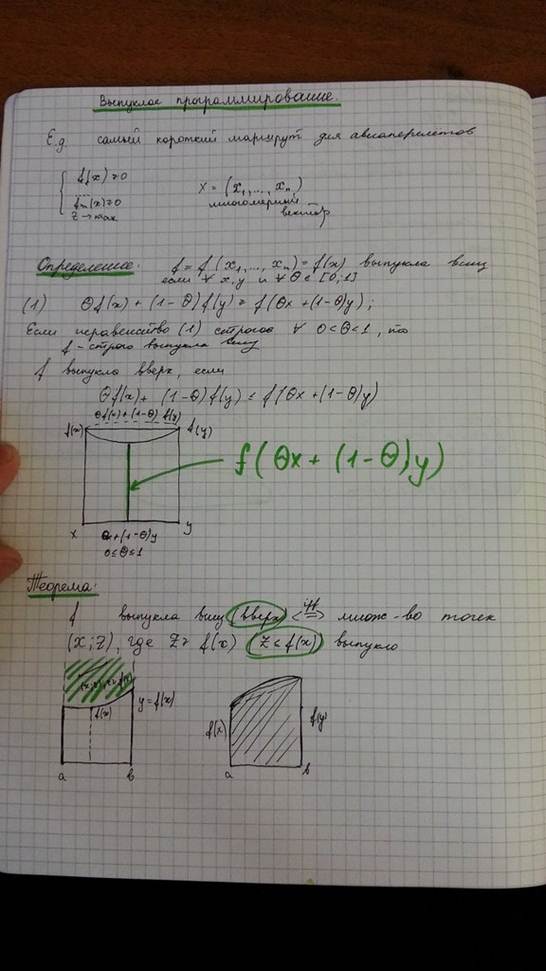 Выпуклое программирование.
E.g. самый короткий маршрут для авиаперелётов
f₁(x) ≥ 0
fₘ(x) ≥ 0
z → max
x = (x₁, ..., xₙ)
многомерный
вектор
Определение: f = f(x₁, ..., xₙ) = f(x) выпукла вниз
если ∀ x, y и ∀ θ ∈ [0; 1]
(1) θf(x) + (1-θ)f(y) ≥ f(θx + (1-θ)y);
Если неравенство (1) строгое ∀ 0<θ<1, то
f - строго выпукла вниз
f выпукла вверх, если
θf(x) + (1-θ)f(y) ≤ f(θx + (1-θ)y)
θf(x) + (1-θ)f(y)
f(x) f(y)
f(θx + (1-θ)y)
x θx + (1-θ)y y
0≤θ≤1
Теорема:
f выпукла вниз (вверх) iff <=> множ-во точек
(x; z), где z ≥ f(x) (z ≤ f(x)) выпукло
y = f(x)
f(x)
f(x) f(y)
a b
a b